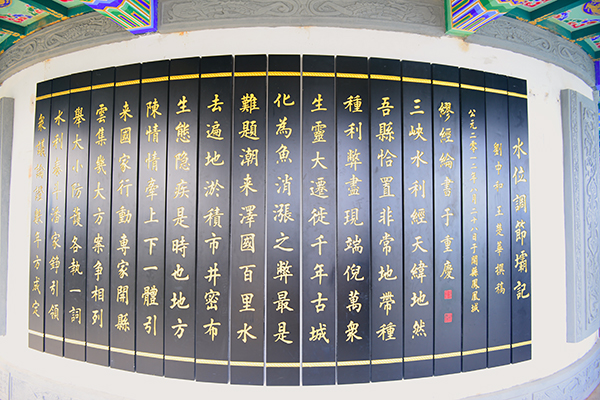 水位調節壩記
劉中和 王楚華 撰稿
公元二零一二年八月二十八日于開縣鳳凰城
繆經綸書于重慶
三峽水利經天緯地然
吾縣恰置非常地帶種
種利弊盡現端倪萬衆
生靈大遷徙千年古城
化為魚消漲之弊最是
難題潮來澤國百里水
去遍地淤積市井密布
生態隐疾是時也地方
陳情情牽上下一體引
来國家行動專家開縣
雲集幾大方案爭相列
舉大小防護各執一詞
水利泰斗潘家錚引領
衆數年方成定